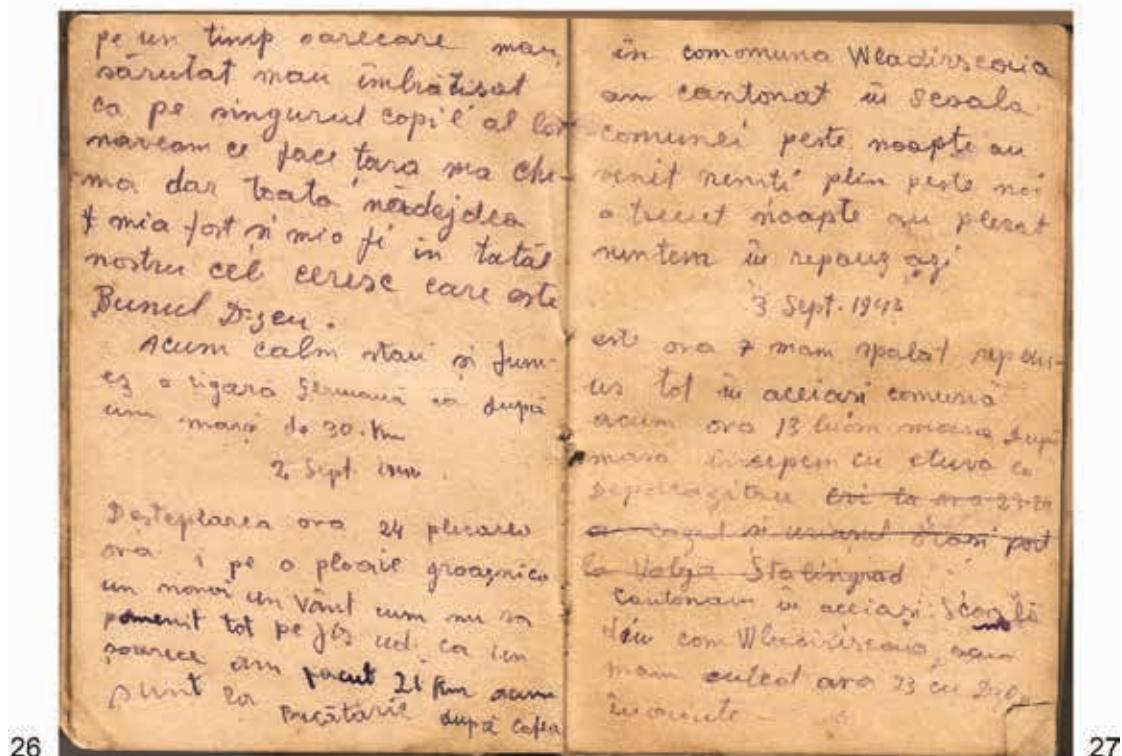 pe un timp oarecare mau
sărutat mau îmbrătisat
ca pe singurul copil al lor
naveam ce face tara ma che-
ma dar toată nădejdea
mia fost si mia fi in tatăl
nostru cel ceresc care este
Bunul D-zeu.
Acum calm stau si fum-
ez o tigară Germană după
un mars de 30. Km
2 Sept
Desteptarea ora 24 plecarea
ora 1 pe o ploaie groaznica
un noroi un vânt cum nu sa
pomenit tot pe jos ud ca un
soarece am facut 21 km acum
sunt la Bucătarie după cafea
în comomuna Wladirscovia
am cantonat în Scoala
comunei peste noapte au
venit nemti plin peste noi
a trecut noapte au plecat
suntem în repauz azi
3 Sept. 1942
este ora 7 mam spalat repau-
us tot în acciasi comună
acum ora 13 luăm masa După
masa incepem cu etuva ca
Deparazitare eri la ora 23-24
a cazut si uriasul Oras port
la Volga Stalingrad
Cantonam în acciasi Scoală
din com Wladiriscovia,
mam culcat ora 23 cu D-zeu
înainte -
26
27